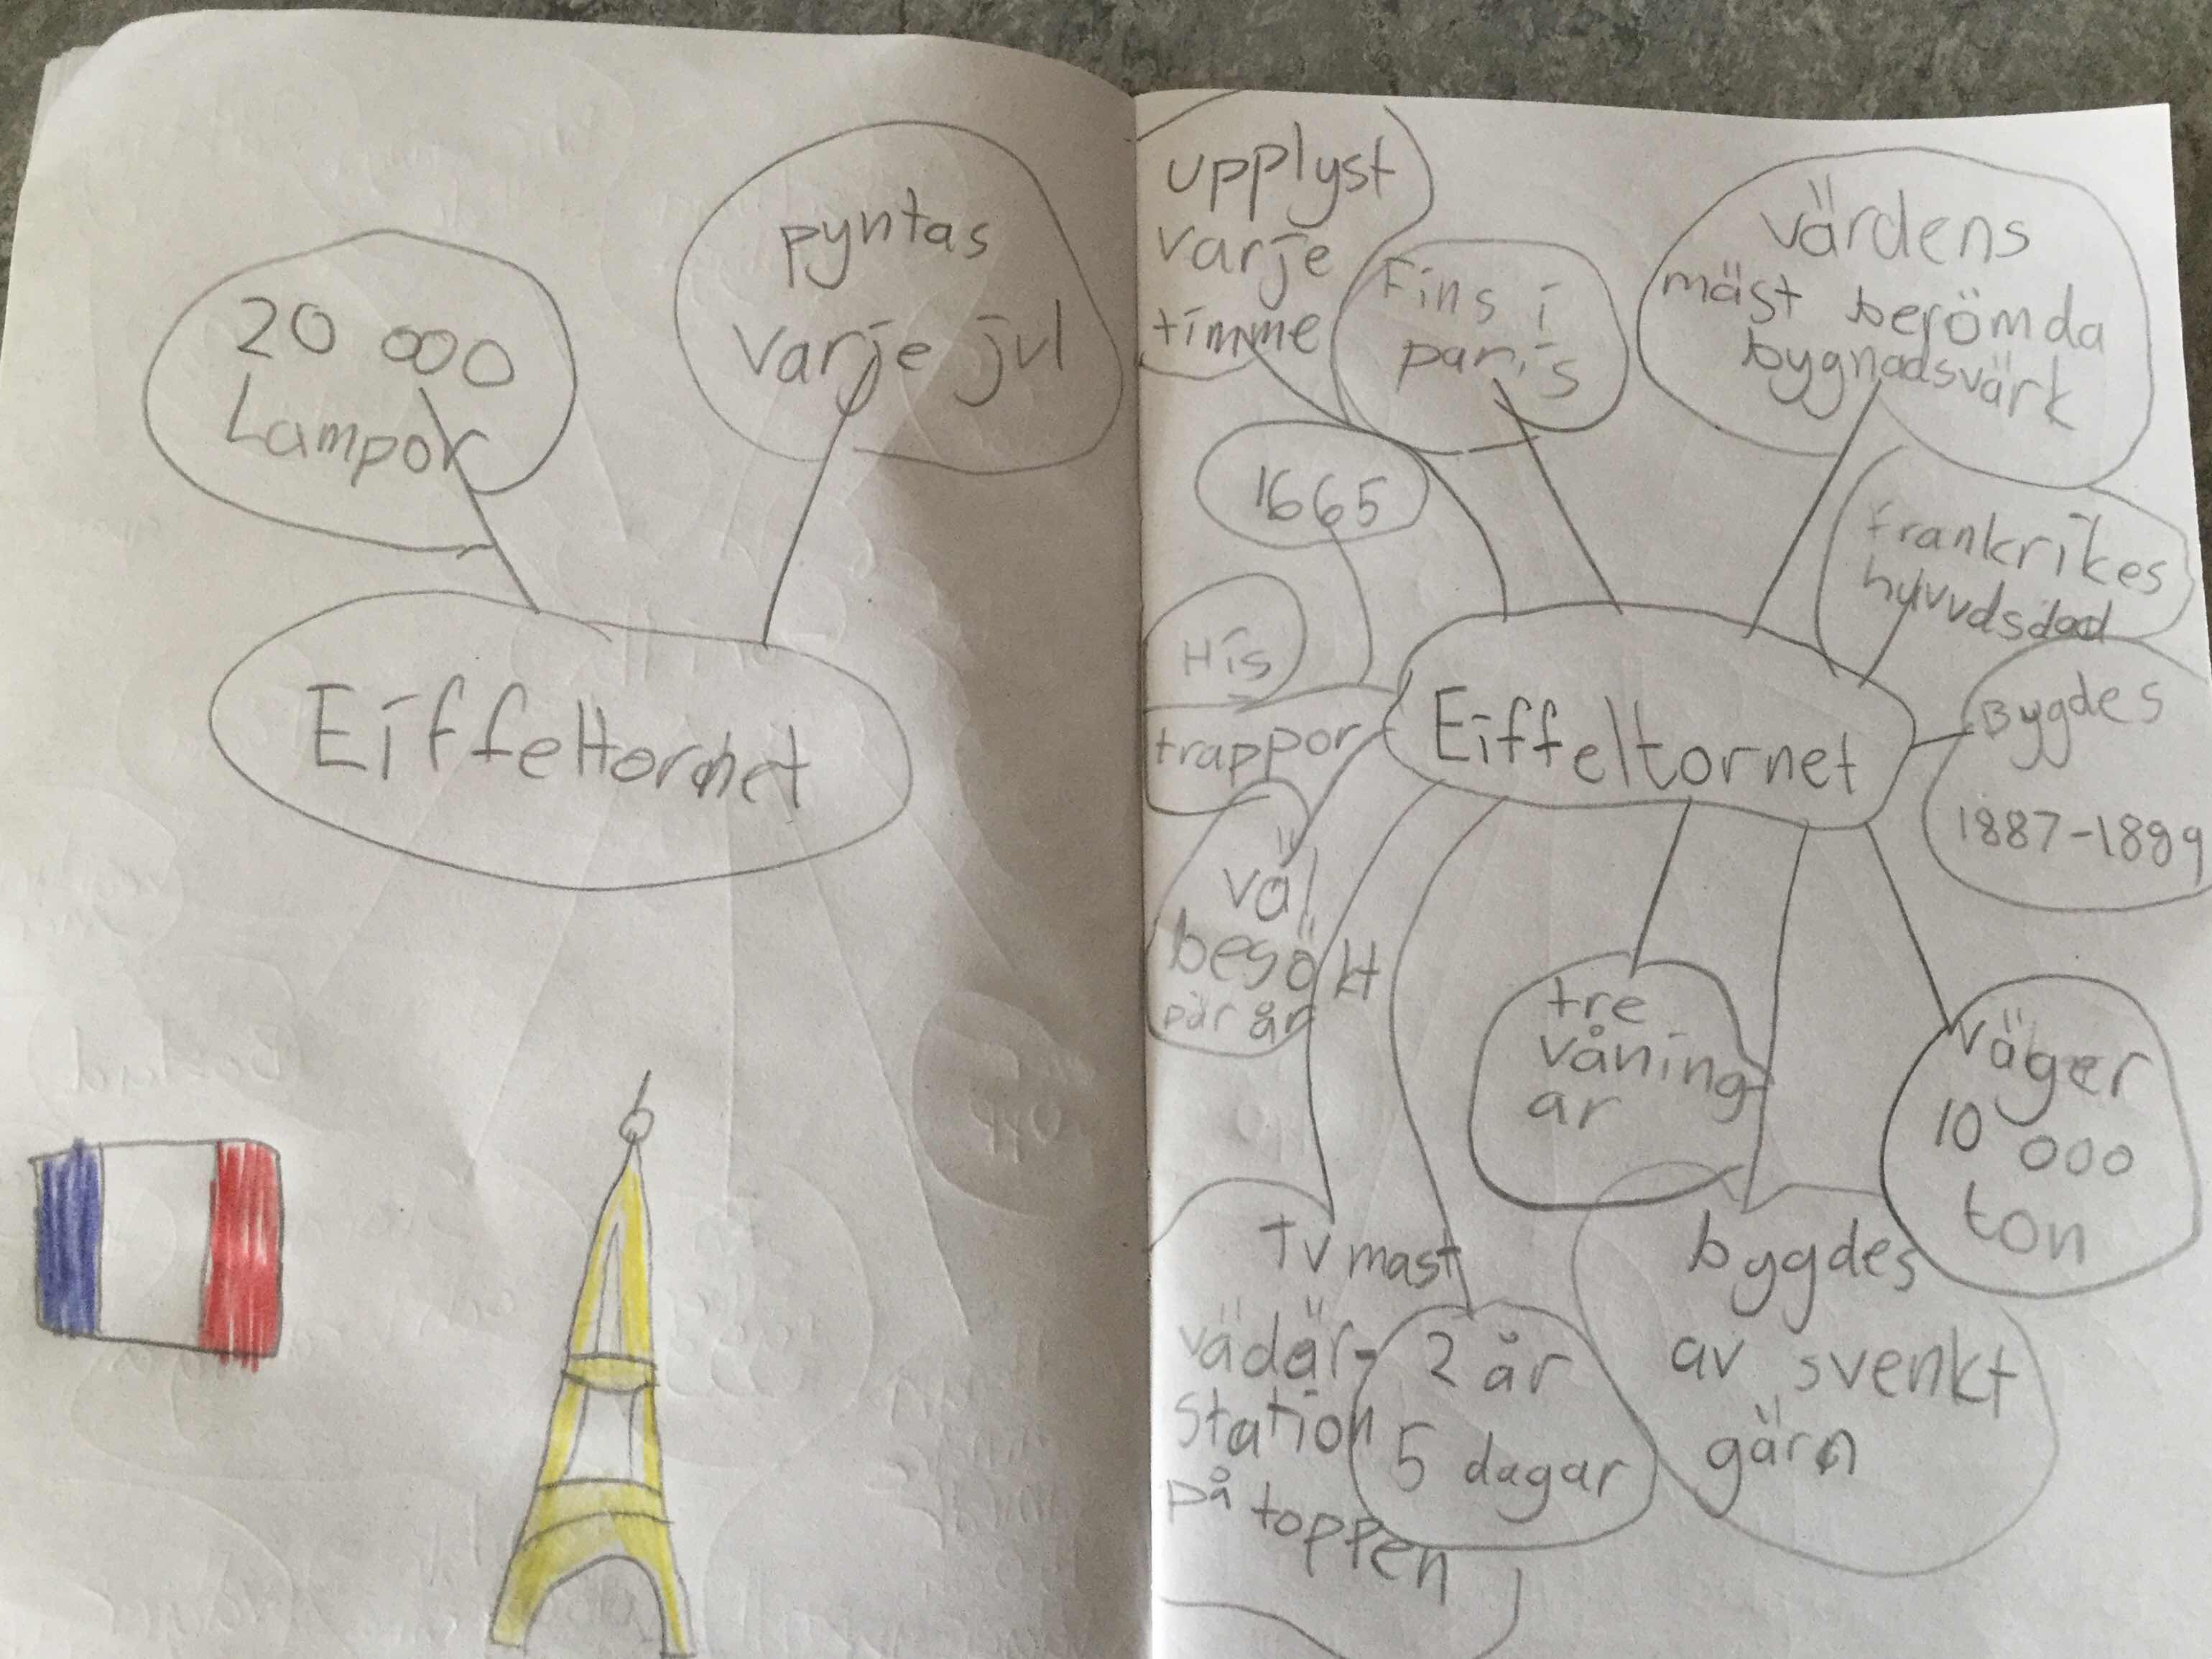 20 000
Lampor
pyntas
varje jul
Eiffeltornet
upplyst
varje
timme
Fins i
paris
värdens
mäst berömda
bygnadsvärk
1665
frankrikes
huvudsdad
His
trappor
Eiffeltornet
Bygdes
1887-1889
väl
besökt
pär år
tre
våning
ar
väger
10 000
ton
Tv mast
vädär-
station
på toppen
2 år
5 dagar
bygdes
av svenkt
gärn